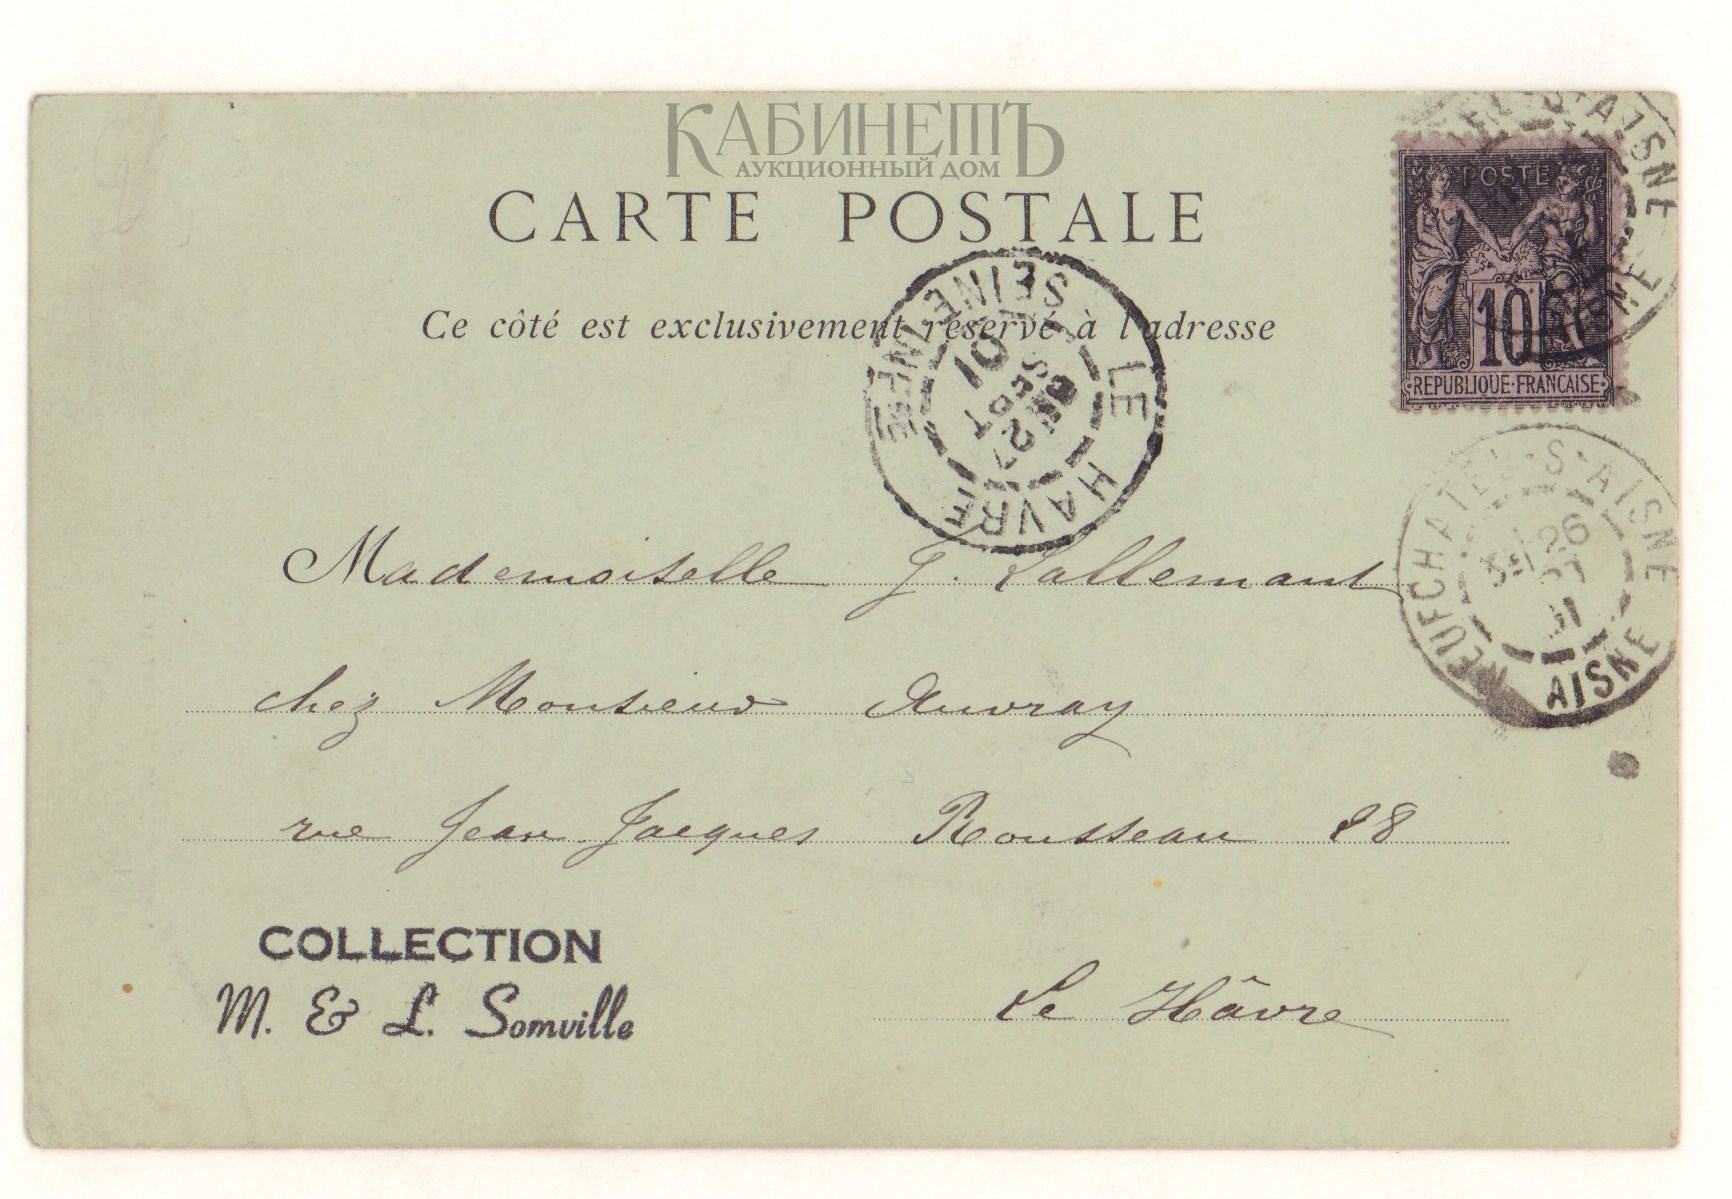 КАБИНЕТЪ
АУКЦИОННЫЙ ДОМ
CARTE POSTALE
Ce côté est exclusivement réservé à l'adresse
POSTE
10
REPUBLIQUE FRANCAISE
LE HAVRE
SEINE INFRE
27
SEPT
01
NEUFCHATEL-S-AISNE
26
AISNE
Mademoiselle J. Lallemant
chez Monsieur Auvray
rue Jean Jacques Rousseau 88
Le Hâvre
COLLECTION
M. & L. Somville